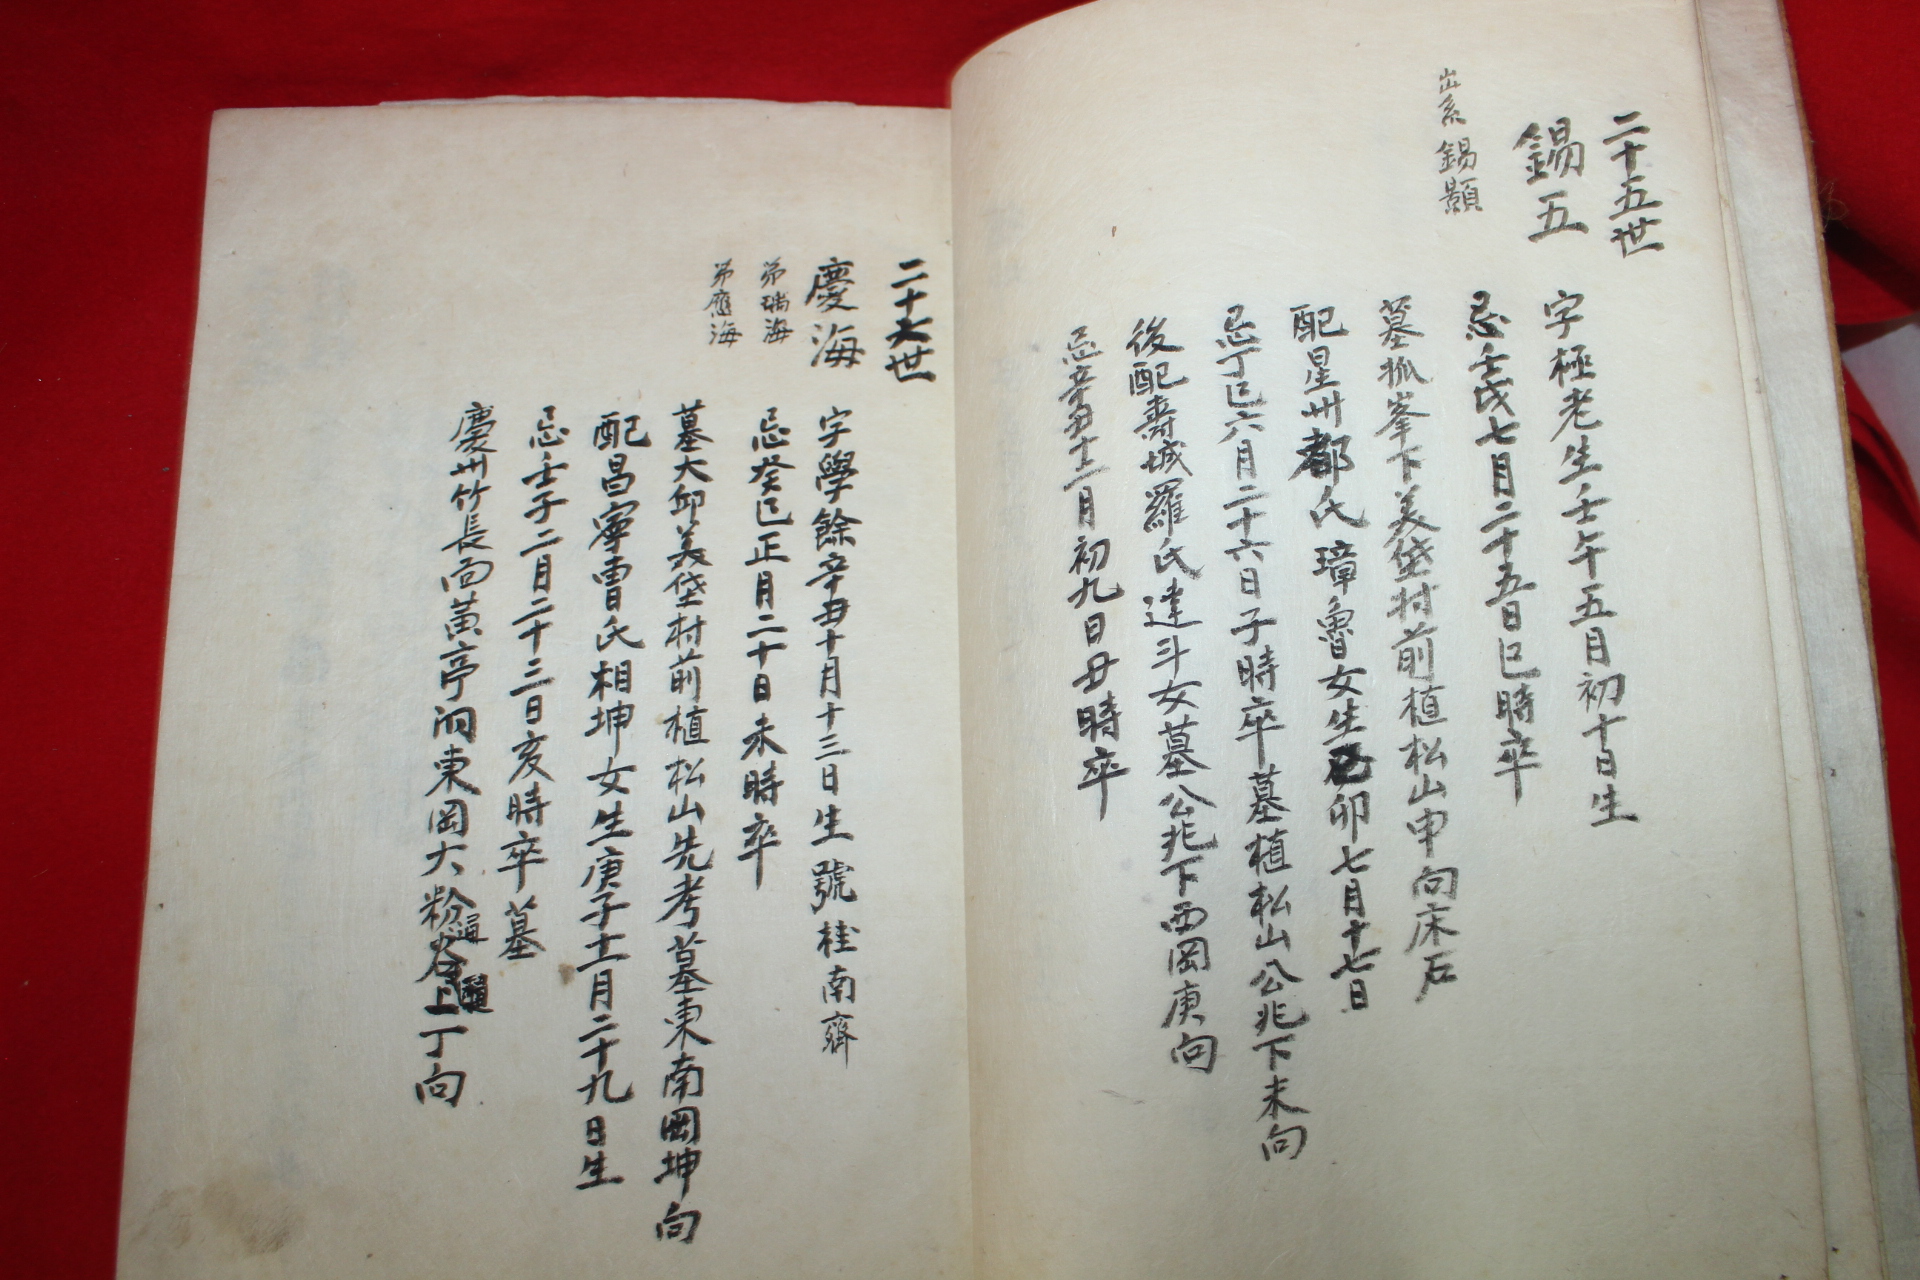 二十五世
錫五
出系錫顯
字極老生壬午五月初十日生
忌壬戌七月二十五日巳時卒
墓狐峯下美垈村前植松山申向床石
配星州都氏璋魯女生己卯七月十七日
忌丁巳六月二十六日子時卒墓植松山公兆下未向
後配壽城羅氏達斗女墓公兆下西岡庚向
忌辛丑十二月初九日丑時卒
二十六世
慶海
弟瑞海
弟應海
字學餘辛丑十月十三日生號桂南齋
忌癸巳正月二十日未時卒
墓大邱美垈村前植松山先考墓東南岡坤向
配昌寧曺氏相坤女生庚子十一月二十九日生
忌壬子二月二十三日亥時卒墓
慶州竹長面黃亭洞東岡大粉谷上丁向